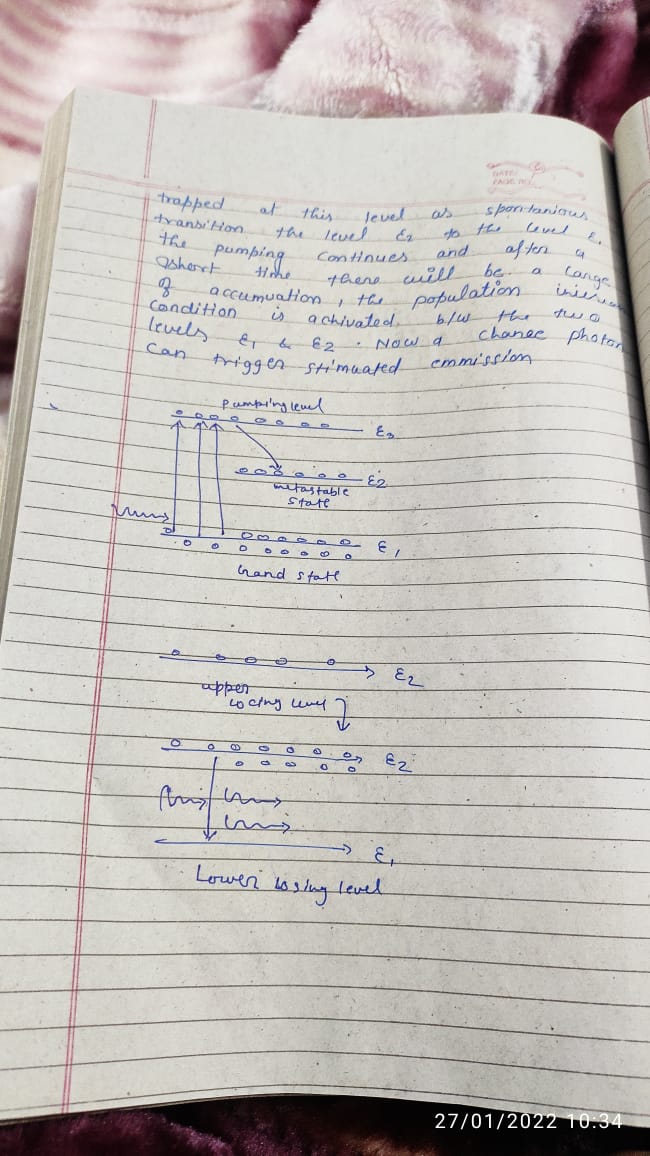 DATE:
PAGE NO.:
trapped at this level as spontanious
transition the level ε2 to the level ε,
the pumping continues and after a
short time there will be a large
of accumuation, the population
condition is achivated b/w the two
levels ε1 & ε2. Now a chance photon
can trigger stimuated emmission
Pumping level
ε3
ε2
metastable
state
ε1
Grand state
ε2
upper
losing level
ε2
ε1
Lower losing level
27/01/2022 10:34